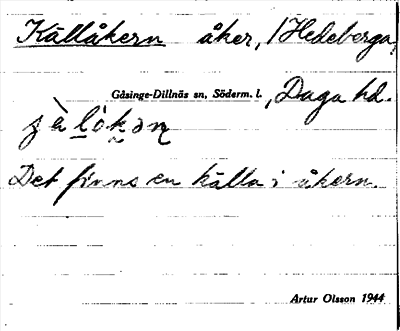 Källåkern åker, /Hedeberga/
Gåsinge-Dillnäs sn, Söderm. l., Daga hd.
Det finns en källa i åkern.
Artur Olsson 1944